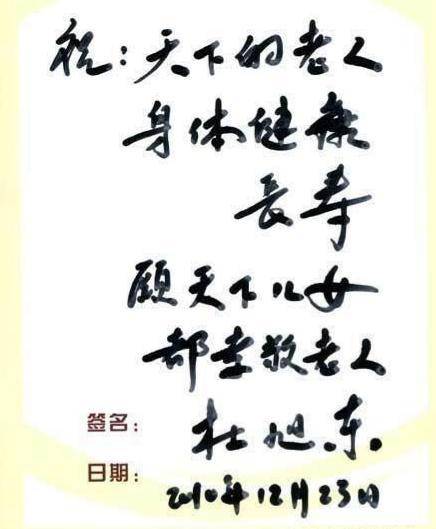 祝：天下的老人
身体健康
長寿
願天下儿女
都孝敬老人
签名：杜旭东
日期：2010年12月23日